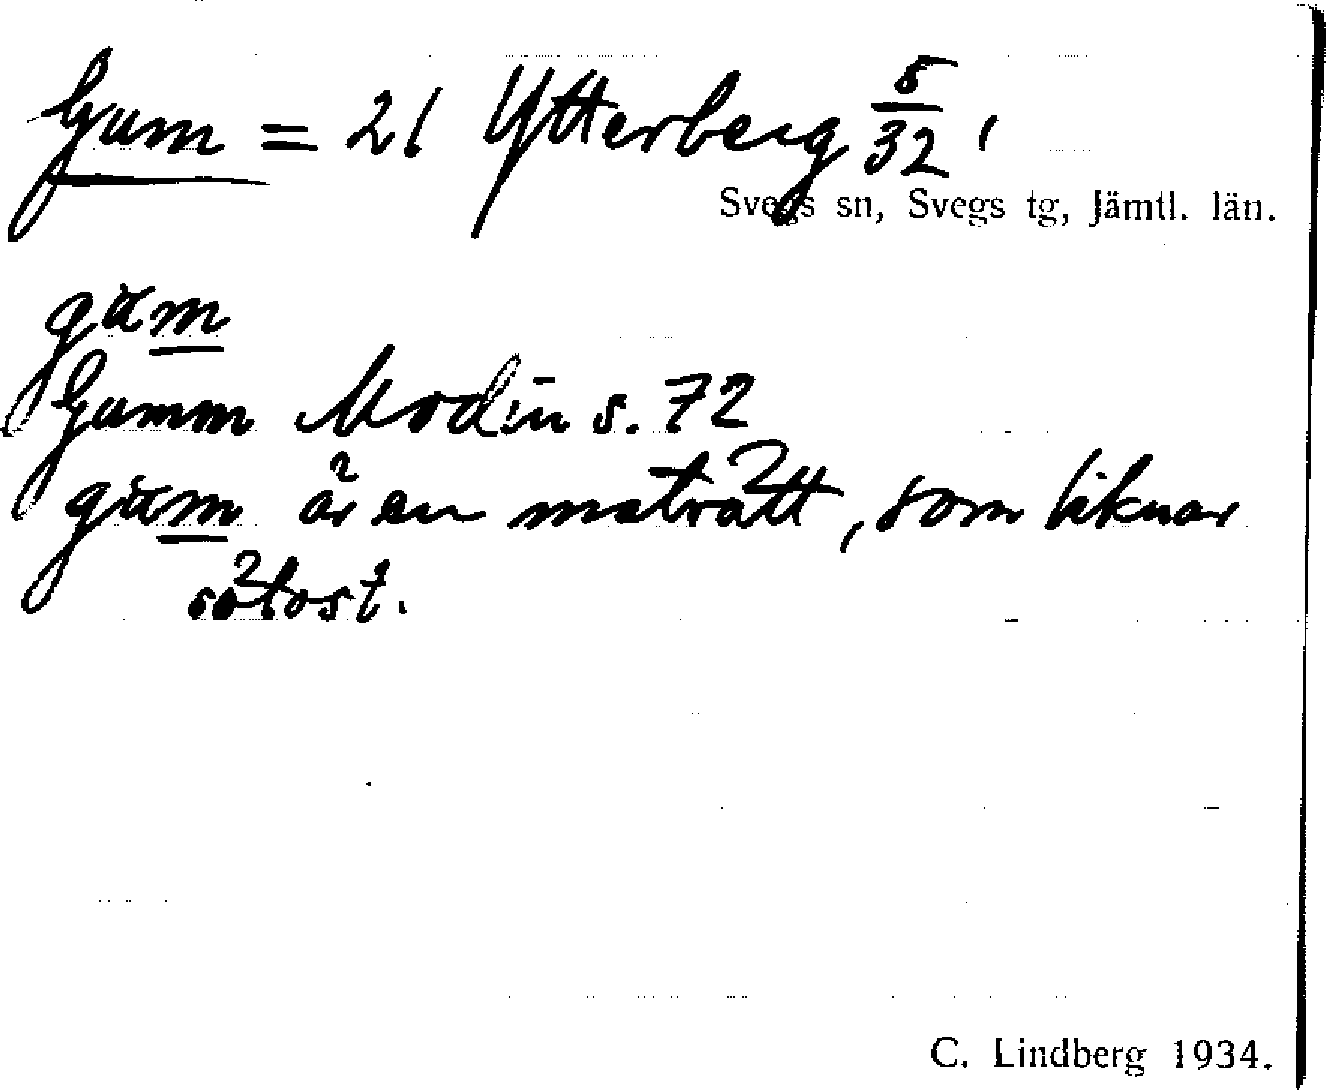 Gum = 21 Ytterberg 5/32,
Svegs sn, Svegs tg, Jämtl. län.
gum
Gumm Modin s. 72
gum är en maträtt, som liknar
sötost.
C. Lindberg 1934.